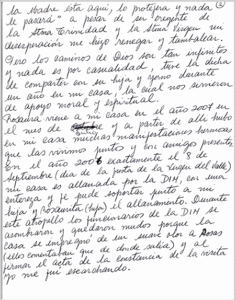 la Madre está aquí, lo protejera y nada le pasará" a pesar de ser creyente de
la Stma Trinidad y la Stma Virgen mi
desesperación me hizo renegar y tambalear.
Pero los caminos de Dios son tan infinitos
y nada es por casualidad, tuve la dicha
de compartir con su hija y yerno durante
un año en mi casa, la cual nos sirvieron
de apoyo moral y espiritual.
Rosaura viene a mi casa en el año 2004 en
el mes de y a partir de allí hubo
en mi casa muchas manifestaciones hermosas
que las vivimos juntos y con amigos presente
En el año 2006 exactamente el 8 de
Septiembre (día de la fiesta de la Virgen del Valle)
mi casa es allanada por la DIM, con una
entereza y fe pude soportar junto a mi
hija y Rosaurita (hija) el allanamiento. Durante
este atropello los funcionarios de la DIM se
asombraron y quedaron mudos porque la
casa se impregno de un suave olor a Rosas
(ellos comentaban que de donde salía) y al
firmar el acta de la constancia de la visita
yo me fui escarchando.